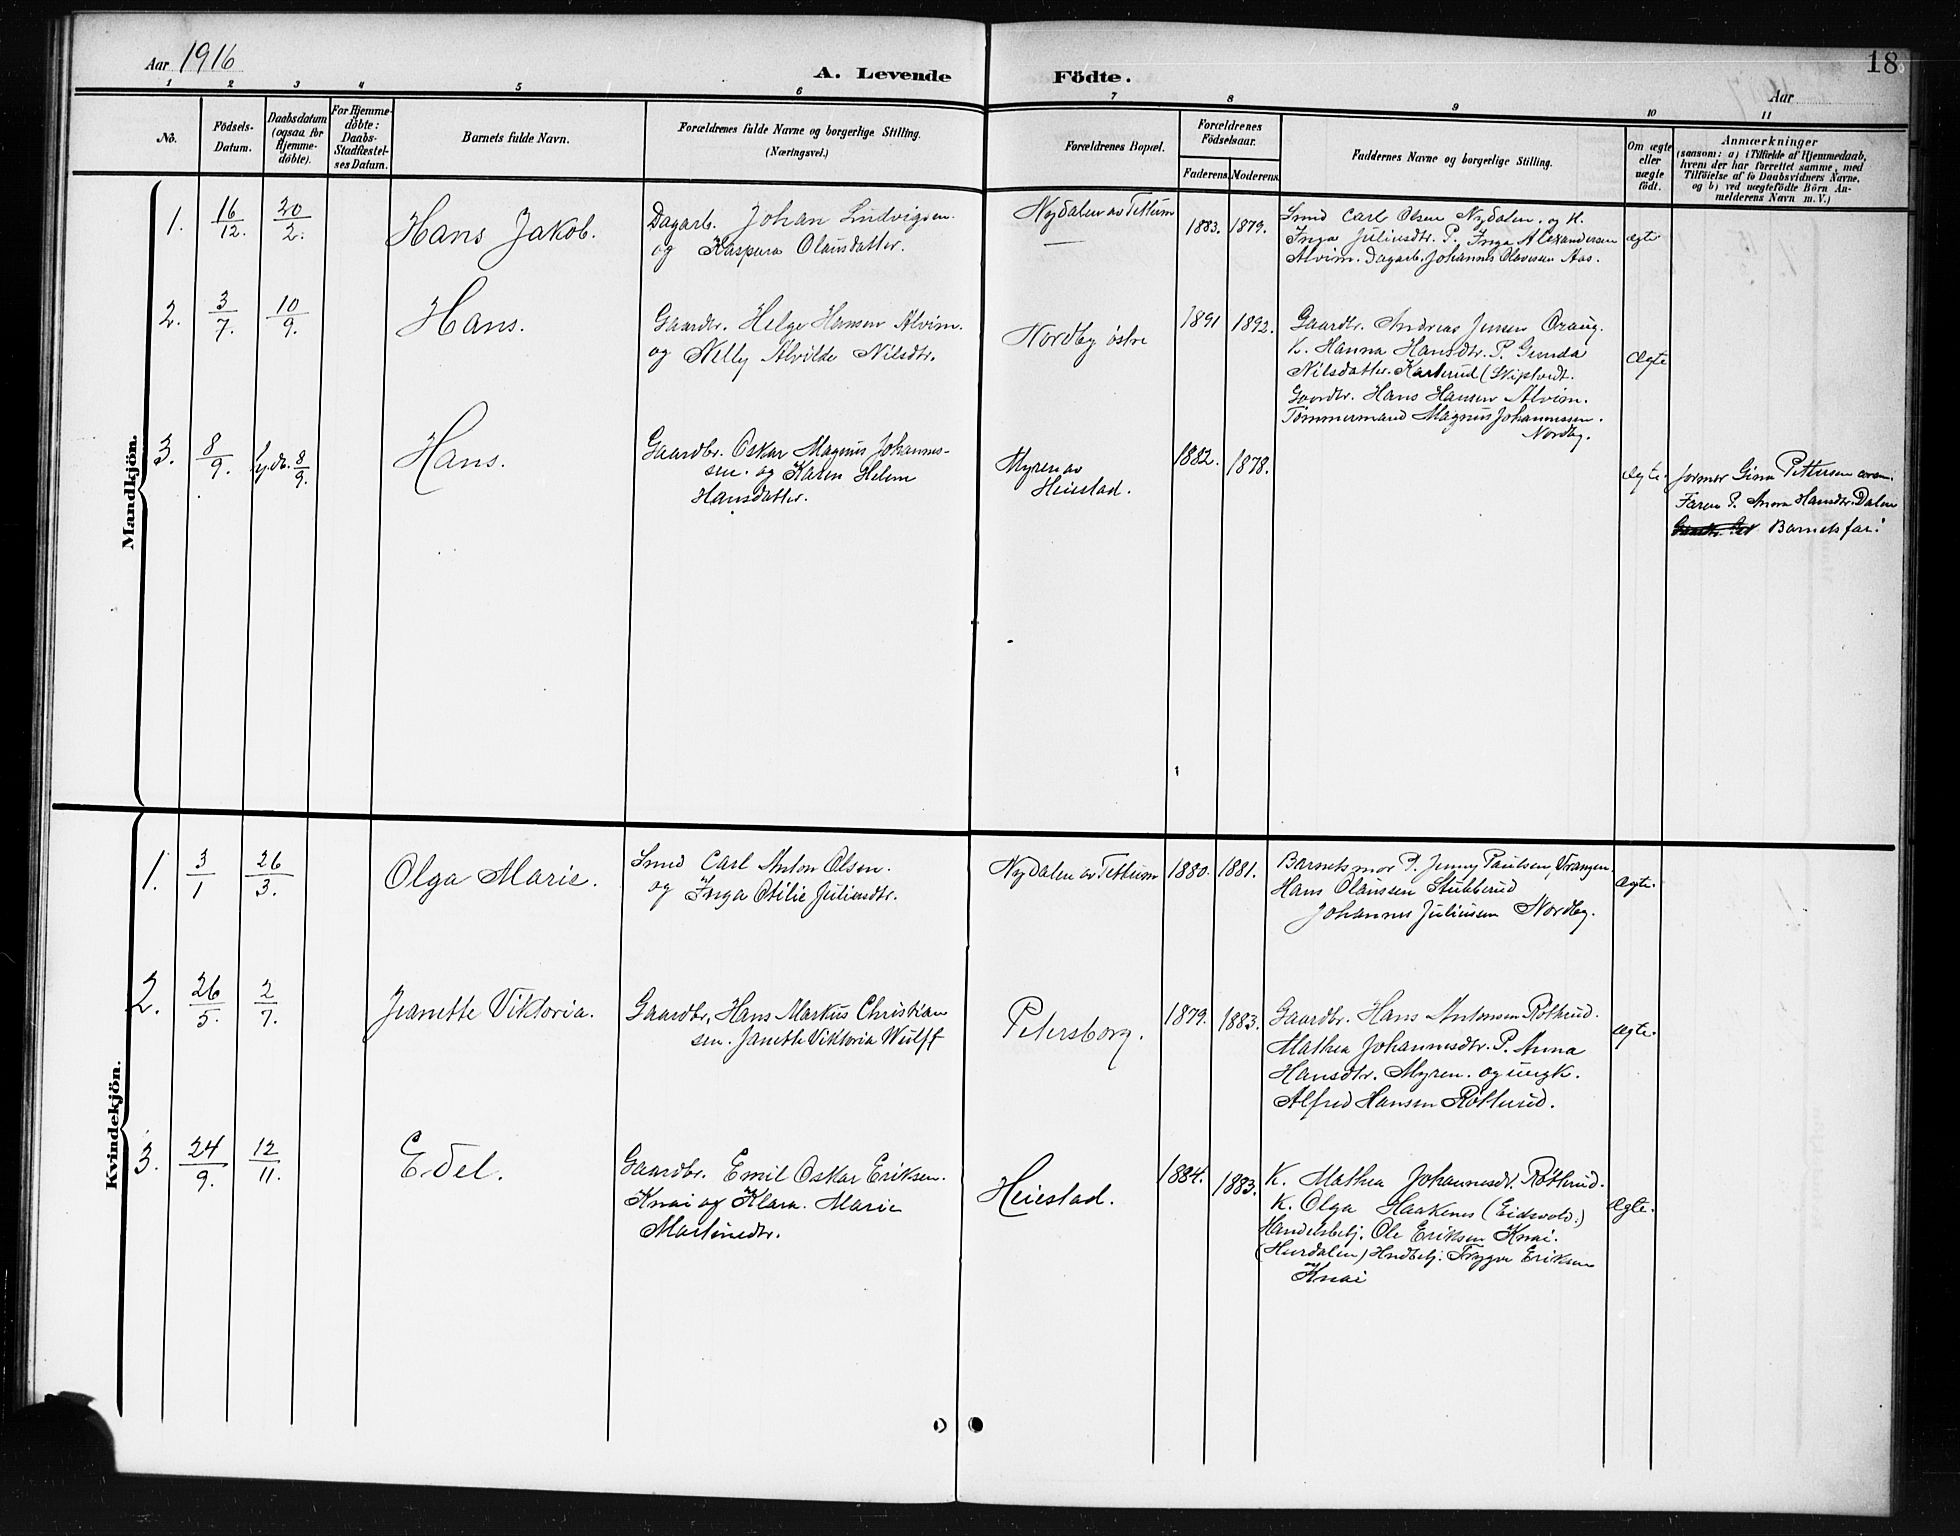 Aar 1916
A. Levende Födte.
18
Aar
1 2 3 4 5 6 7 8 9 10 11
No.
Födsels-
Datum.
Daabsdatum
(ogsaa for
Hjemme-
döbte).
For Hjemme-
döbte:
Daabs-
Stadfæstel-
ses Datum.
Barnets fulde Navn.
Forældrenes fulde Navne og borgerlige Stilling.
(Næringsvei.)
Forældrenes Bopæl.
Forældrenes
Födselsaar.
Faderens. Moderens.
Faddernes Navne og borgerlige Stilling.
Om ægte
eller
uægte
födt.
Anmærkninger
(saasom: a) i Tilfælde af Hjemmedaab,
hvem der har forrettet samme, med
Tilföielse af to Daabsvidners Navne.
og b) ved uægtefödte Börn An-
melderens Navn m. V.)
Mandkjön.
1. 16/12. 20/2. Hans Jakob.
Dagarb. Johan Ludvigsen.
og Kaspara Olausdatter.
Nydalen av Tettum
1883. 1879.
Smed Carl Olsen Nydalen, og K.
Inga Juliusdtr. P. Inga Alexandersen
Alvim. Dagarb. Johannes Olavesen Aas.
ægte
2. 3/7. 10/9. Hans.
Gaardbr. Helge Hansen Alvim.
og Nelly Alvilde Nilsdtr.
Nordby östre
1891 1892.
Gaardbr. Andreas Jensen Oraug.
K. Hanna Hansdtr. P. Gunda
Nilsdatter. Karterud (Skiptvedt.
Gaardbr. Hans Hansen Alvim.
Tömmermand Magnus Johannessen.
Nordby.
Ægte
3. 8/9. hj.db. 8/9. Hans.
Gaardbr. Oskar Magnus Johannes-
sen. og Karen Helene
Hansdatter.
Myren av
Heiestad.
1882. 1878.
Ægte.
Jormor Gina Pettersen
Faren P. Anna Hansdtr. Dalen
Barnets far.
Kvindekjön.
1. 3/1 26/3. Olga Marie.
Smed Carl Anton Olsen.
og Inga Otilie Juliusdtr.
Nydalen av Tettum
1880. 1881.
Barnets mor P. Jenny Paulsen, Vrangen.
Hans Olaussen Stubberud
Johannes Juliussen Nordby.
Ægte.
2. 26/5. 2/7. Jeanette Viktoria.
Gaardbr. Hans Markus Christian
sen. Janette Viktoria Wulff
Petersborg.
1879. 1883.
Gaardbr. Hans Antonsen Röttrud.
Mathea Johannesdtr. P. Anna
Hansdtr. Myren. og ungk.
Alfred Hansen Röttrud.
Ægte.
3. 24/9. 12/11. Edel.
Gaardbr. Emil Oskar Eriksen.
Knai og Klara. Marie
Martinedtr.
Heiestad.
1884. 1883.
K. Mathea Johannesdtr. Röttrud.
K. Olga Haakenes (Eidsvold.)
Handelsbetj. Ole Eriksen Knai.
(Hurdalen) Hndbetj. Trygve Eriksen
Knai
Ægte.